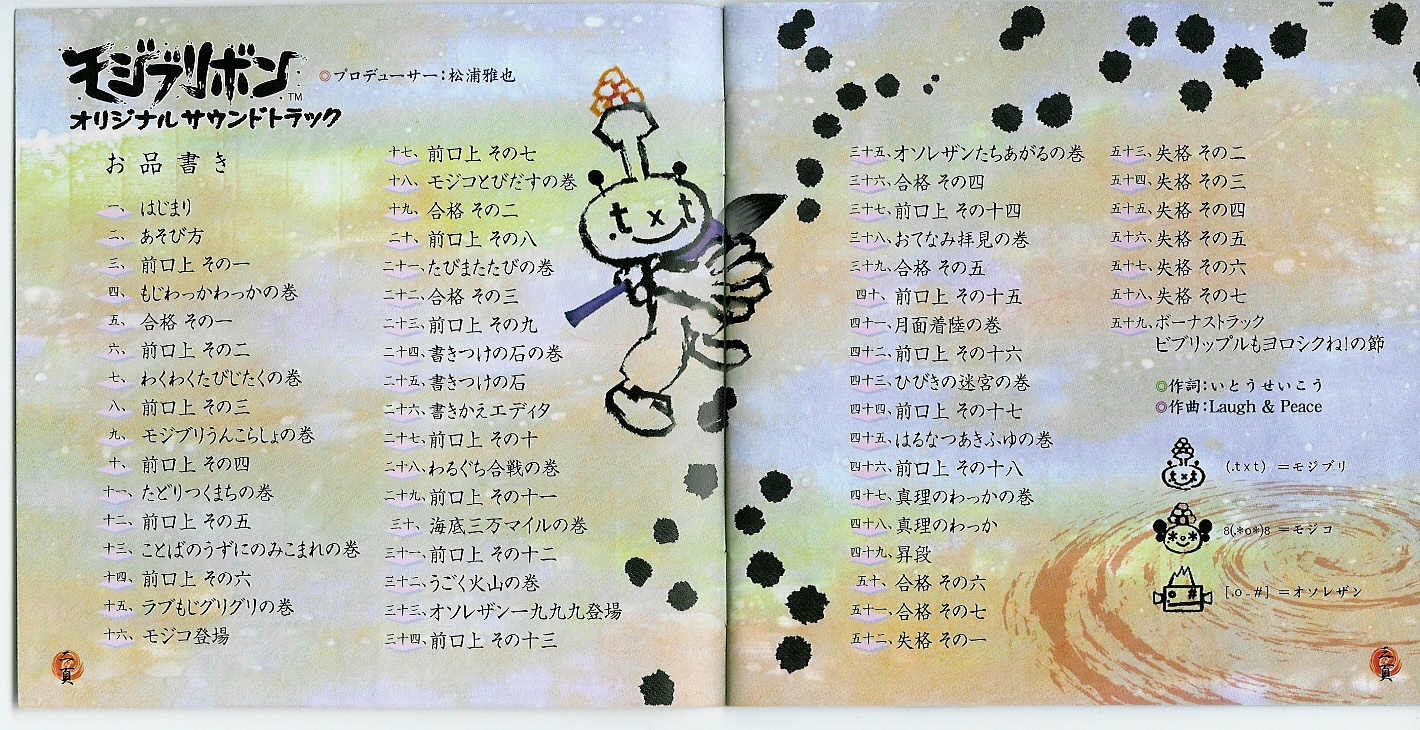 モジブリボン™
オリジナルサウンドトラック
◎プロデューサー：松浦雅也
お品書き
一、はじまり
二、あそび方
三、前口上 その一
四、もじわっかわっかの巻
五、合格 その一
六、前口上 その二
七、わくわくたびじたくの巻
八、前口上 その三
九、モジブリうんこらしょの巻
十、前口上 その四
十一、たどりつくまちの巻
十二、前口上 その五
十三、ことばのうずにのみこまれの巻
十四、前口上 その六
十五、ラブもじグリグリの巻
十六、モジコ登場
十七、前口上 その七
十八、モジコとびだすの巻
十九、合格 その二
二十、前口上 その八
二十一、たびまたたびの巻
二十二、合格 その三
二十三、前口上 その九
二十四、書きつけの石の巻
二十五、書きつけの石
二十六、書きかえエディタ
二十七、前口上 その十
二十八、わるぐち合戦の巻
二十九、前口上 その十一
三十、海底三万マイルの巻
三十一、前口上 その十二
三十二、うごく火山の巻
三十三、オソレザン一九九九登場
三十四、前口上 その十三
.txt
三十五、オソレザンたちあがるの巻
三十六、合格 その四
三十七、前口上 その十四
三十八、おてなみ拝見の巻
三十九、合格 その五
四十、前口上 その十五
四十一、月面着陸の巻
四十二、前口上 その十六
四十三、ひびきの迷宮の巻
四十四、前口上 その十七
四十五、はるなつあきふゆの巻
四十六、前口上 その十八
四十七、真理のわっかの巻
四十八、真理のわっか
四十九、昇段
五十、合格 その六
五十一、合格 その七
五十二、失格 その一
五十三、失格 その二
五十四、失格 その三
五十五、失格 その四
五十六、失格 その五
五十七、失格 その六
五十八、失格 その七
五十九、ボーナストラック
ビブリップルもヨロシクね！の節
◎作詞：いとうせいこう
◎作曲：Laugh & Peace
(.txt) ＝モジブリ
8(.*o*)8 ＝モジコ
[.o_#] ＝オソレザン
二頁